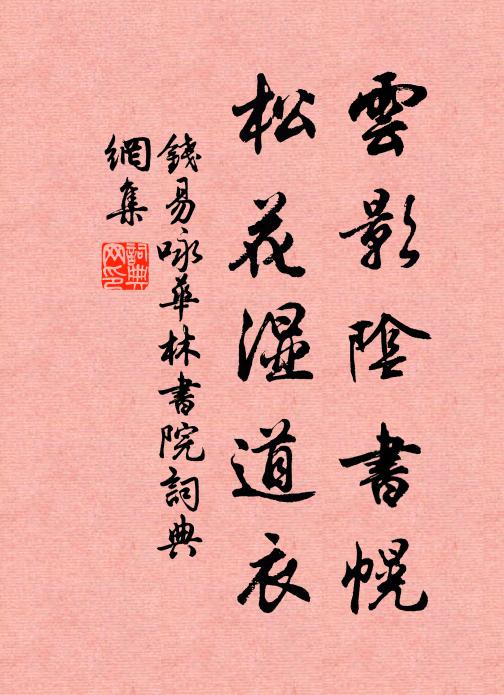 雲影陰書幌
松花濕道衣
錢易咏華林書院詞典
網集
詞典
网印